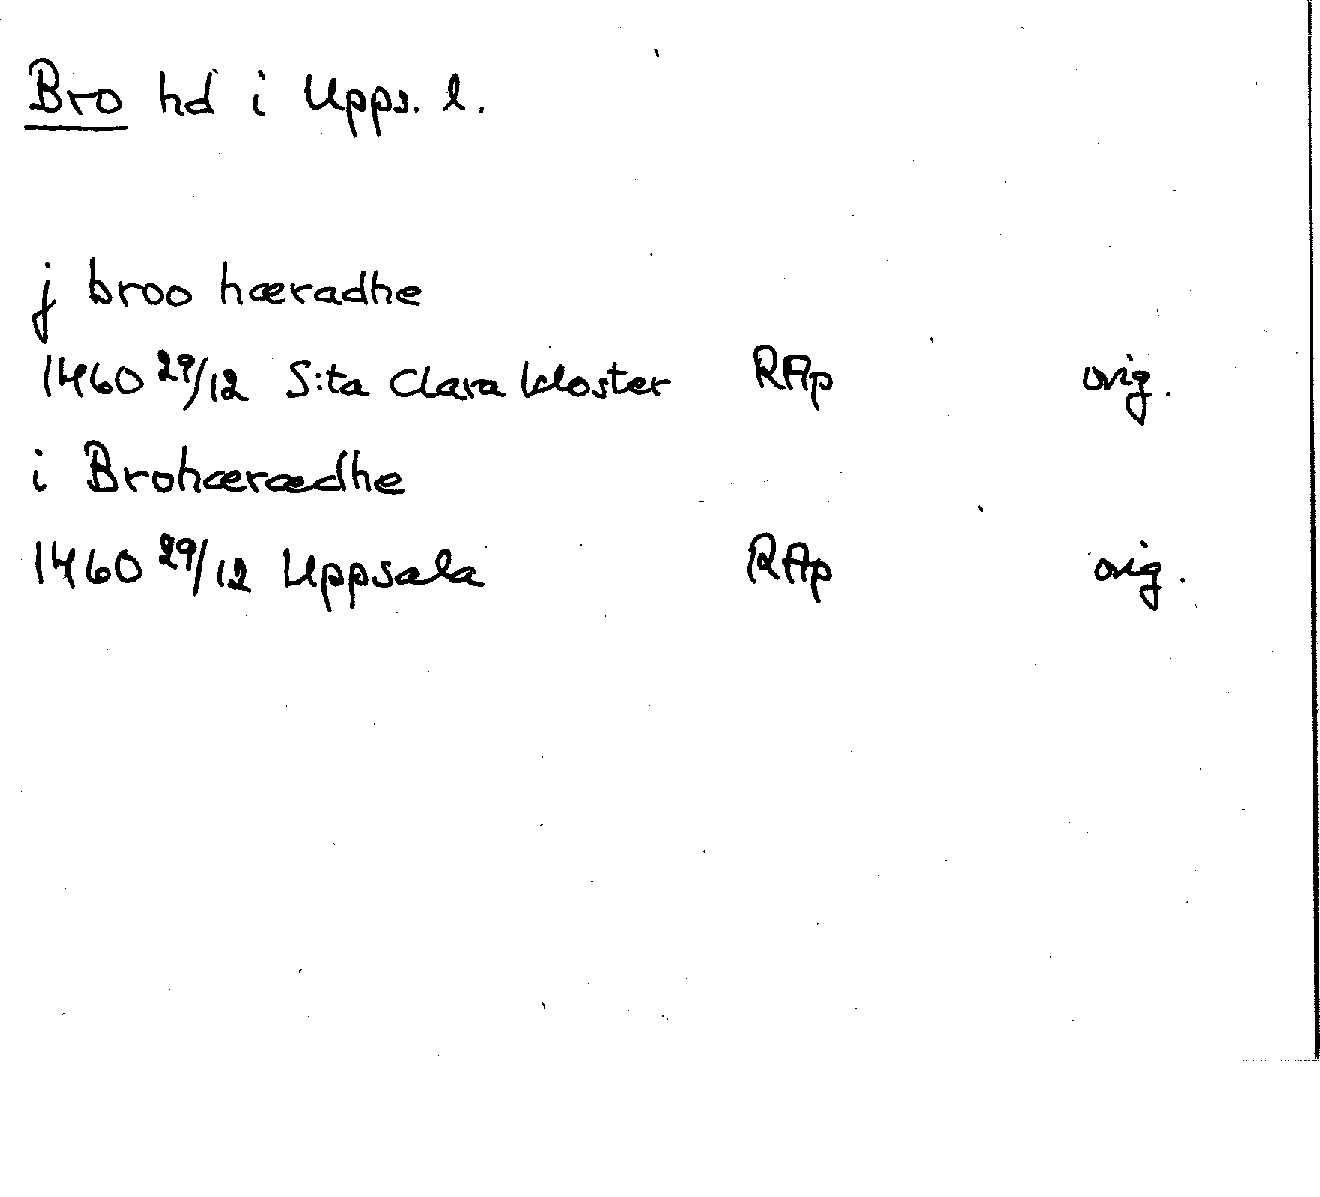 Bro hd i Upps. l.
j broo hæradhe
1460 29/12 S:ta Clara kloster RAp orig.
i Brohærædhe
1460 29/12 Uppsala RAp orig.